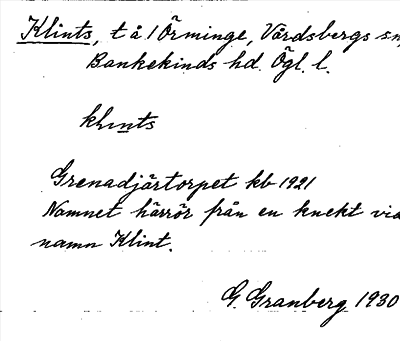 Klints, t å 1 Örminge, Vårdsbergs sn,
Bankekinds hd. Ögl. l.
klınts
Grenadjärtorpet kb 1921
Namnet härrör från en knekt vid
namn Klint.
G. Granberg 1930